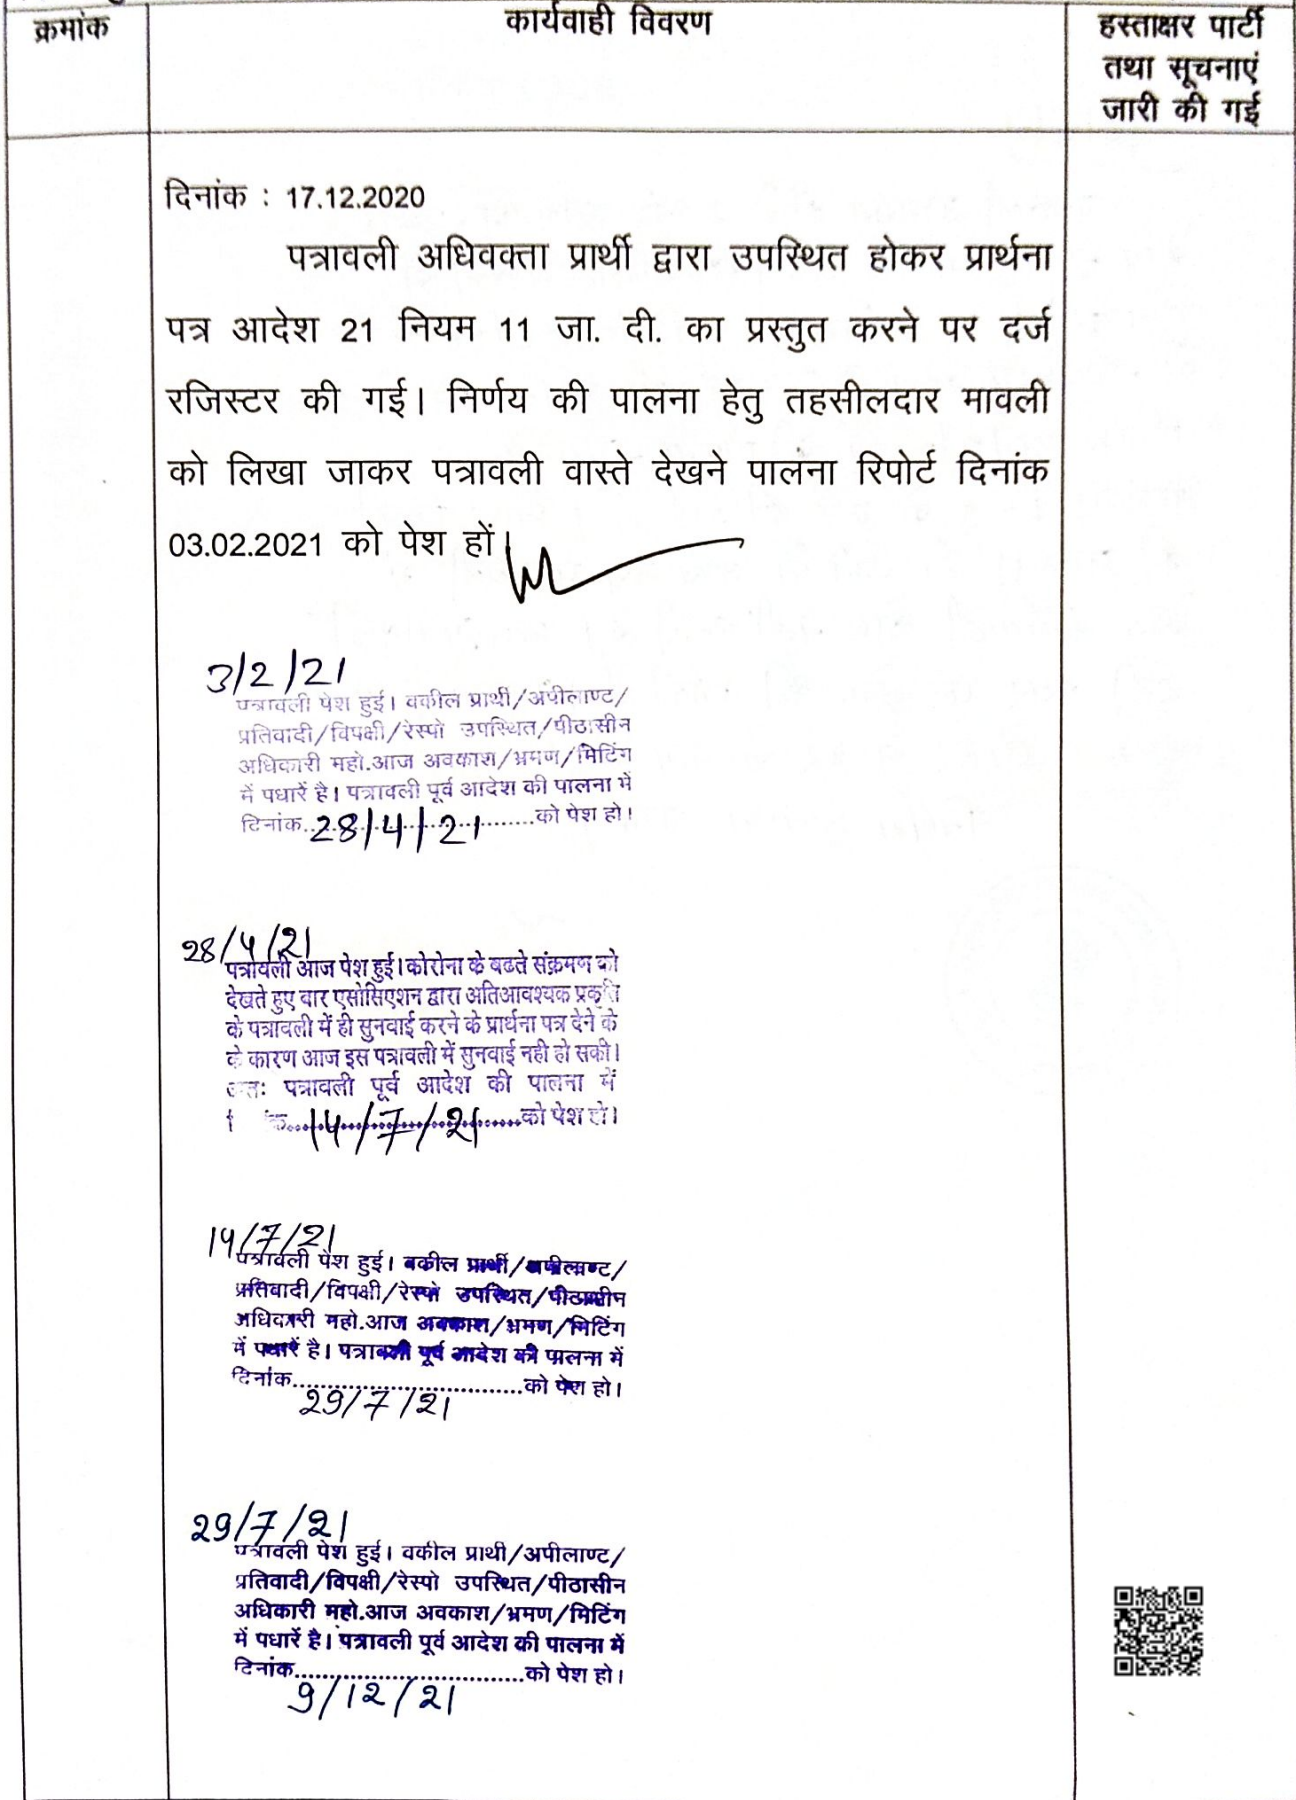 क्रमांक
कार्यवाही विवरण
हस्ताक्षर पार्टी
तथा सूचनाएं
जारी की गई
दिनांक : 17.12.2020
पत्रावली अधिवक्ता प्रार्थी द्वारा उपस्थित होकर प्रार्थना
पत्र आदेश 21 नियम 11 जा. दी. का प्रस्तुत करने पर दर्ज
रजिस्टर की गई। निर्णय की पालना हेतु तहसीलदार मावली
को लिखा जाकर पत्रावली वास्ते देखने पालना रिपोर्ट दिनांक
03.02.2021 को पेश हों।
3/2/21
पत्रावली पेश हुई। वकील प्रार्थी/अपीलाण्ट/
प्रतिवादी/विपक्षी/रेस्पो उपस्थित/पीठासीन
अधिकारी महो.आज अवकाश/भ्रमण/मिटिंग
में पधारें है। पत्रावली पूर्व आदेश की पालना में
दिनांक..28/4/21......को पेश हो।
28/4/21
पत्रावली आज पेश हुई। कोरोना के बढते संक्रमण को
देखते हुए बार एसोसिएशन द्वारा अतिआवश्यक प्रकृति
के पत्रावली में ही सुनवाई करने के प्रार्थना पत्र देने के
के कारण आज इस पत्रावली में सुनवाई नही हो सकी।
अतः पत्रावली पूर्व आदेश की पालना में
14/7/21......को पेश हो।
14/7/21
पत्रावली पेश हुई। वकील प्रार्थी/अपीलाण्ट/
प्रतिवादी/विपक्षी/रेस्पो उपस्थित/पीठासीन
अधिकारी महो.आज अवकाश/भ्रमण/मिटिंग
में पधारें है। पत्रावली पूर्व आदेश की पालना में
दिनांक.................................को पेश हो।
29/7/21
29/7/21
पत्रावली पेश हुई। वकील प्रार्थी/अपीलाण्ट/
प्रतिवादी/विपक्षी/रेस्पो उपस्थित/पीठासीन
अधिकारी महो.आज अवकाश/भ्रमण/मिटिंग
में पधारें है। पत्रावली पूर्व आदेश की पालना में
दिनांक.................................को पेश हो।
9/12/21